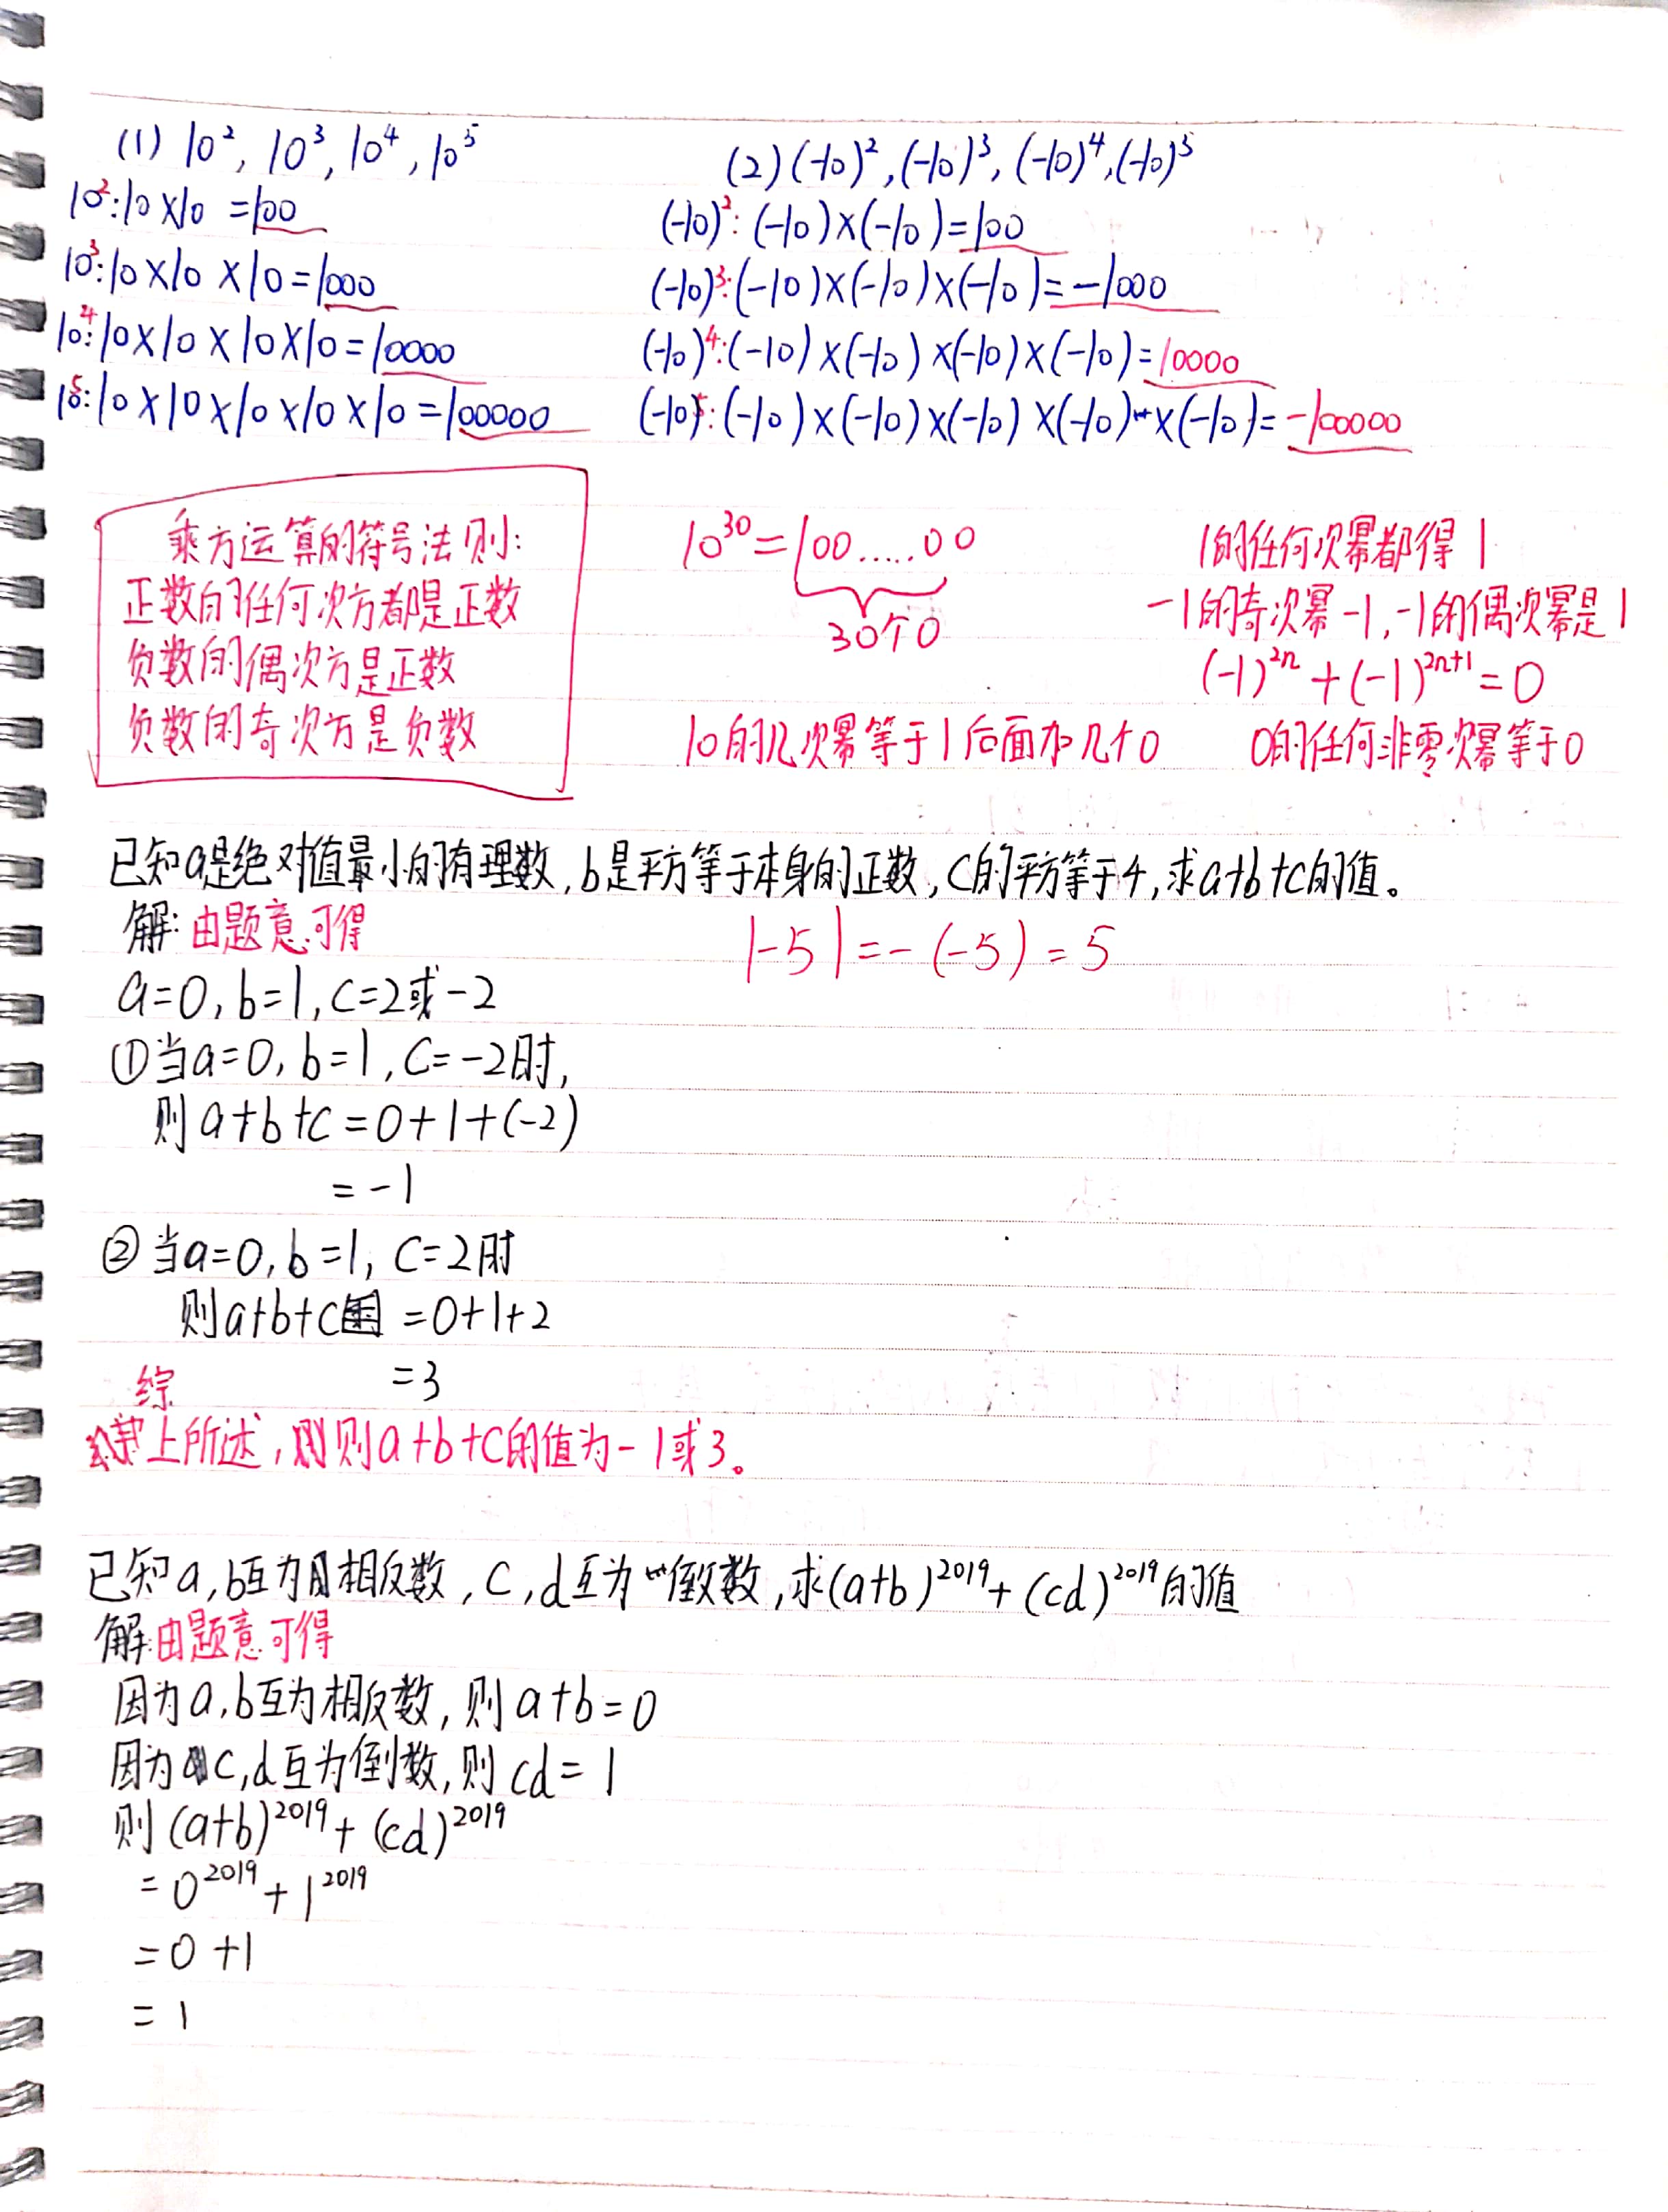 (1) 10², 10³, 10⁴, 10⁵
10²:10×10=100
10³:10×10×10=1000
10⁴:10×10×10×10=10000
10⁵:10×10×10×10×10=100000
(2)(-10)²,(-10)³,(-10)⁴,(-10)⁵
(-10)²:(-10)×(-10)=100
(-10)³:(-10)×(-10)×(-10)=-1000
(-10)⁴:(-10)×(-10)×(-10)×(-10)=10000
(-10)⁵:(-10)×(-10)×(-10)×(-10)×(-10)=-100000
乘方运算的符号法则:
正数的任何次方都是正数
负数的偶次方是正数
负数的奇次方是负数
10³⁰=100.....00
30个0
10的几次幂等于1后面加几个0
1的任何次幂都得1
-1的奇次幂-1,-1的偶次幂是1
(-1)²ⁿ+(-1)²ⁿ⁺¹=0
0的任何非零次幂等于0
已知a是绝对值最小的有理数,b是平方等于本身的正数,c的平方等于4,求a+b+c的值。
解:由题意可得
|-5|=-(-5)=5
a=0,b=1,c=2或-2
①当a=0,b=1,c=-2时,
则a+b+c=0+1+(-2)
=-1
②当a=0,b=1,c=2时
则a+b+c=0+1+2
=3
综上所述,则a+b+c的值为-1或3。
已知a,b互为相反数,c,d互为倒数,求(a+b)²⁰¹⁹+(cd)²⁰¹⁹的值
解:由题意可得
因为a,b互为相反数,则a+b=0
因为c,d互为倒数,则cd=1
则(a+b)²⁰¹⁹+(cd)²⁰¹⁹
=0²⁰¹⁹+1²⁰¹⁹
=0+1
=1